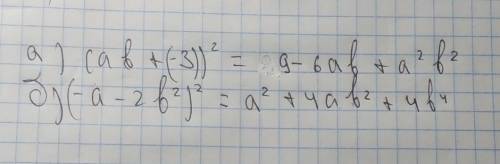 а) (ab + (-3))² = 9 - 6ab + a²b²
б) (-a - 2b²)² = a² + 4ab² + 4b⁴